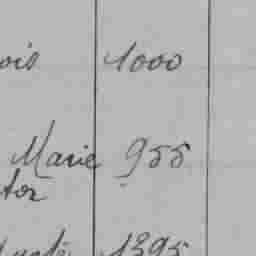 ois 1000
Marie 955
tor
1395